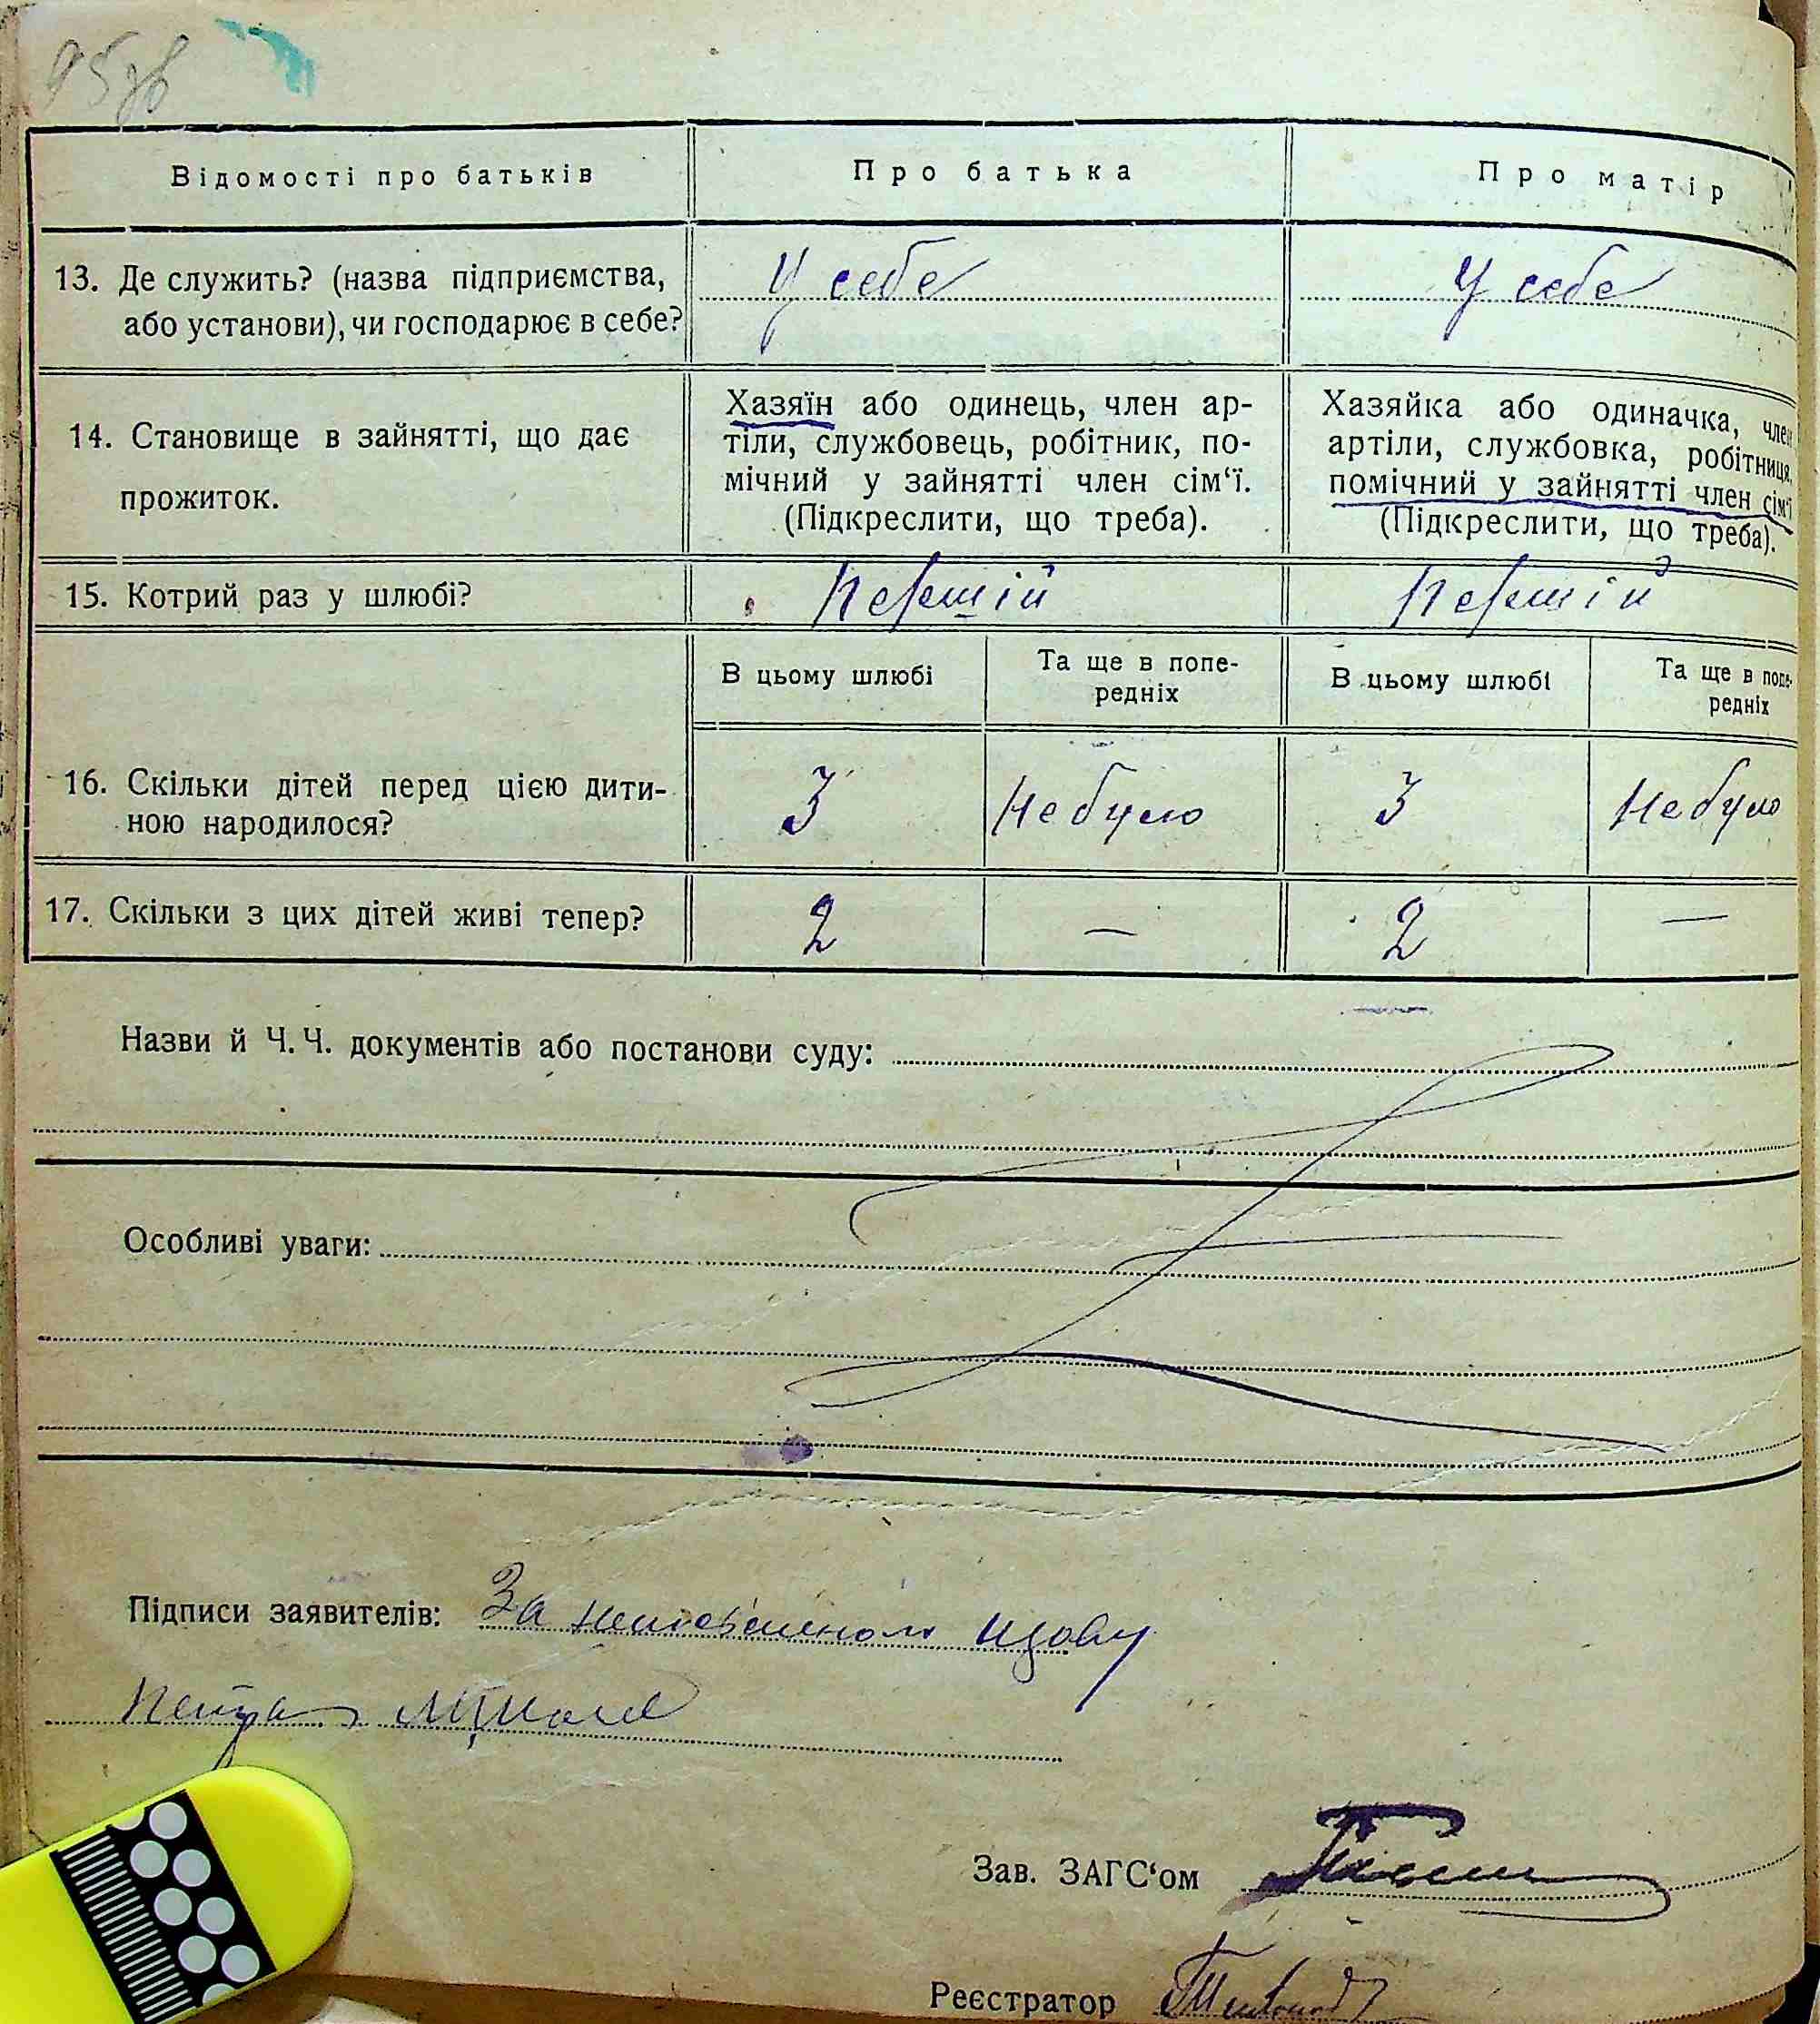 95зв
Відомості про батьків
Про батька
Про матір
13. Де служить? (назва підприємства,
або установи), чи господарює в себе?
У себе
У себе
14. Становище в зайнятті, що дає
прожиток.
Хазяїн або одинець, член ар-
тіли, службовець, робітник, по-
мічний у зайнятті член сім‘ї.
(Підкреслити, що треба).
Хазяйка або одиначка, член
артіли, службовка, робітниця,
помічний у зайнятті член сім‘ї
(Підкреслити, що треба).
15. Котрий раз у шлюбі?
Першій
Першій
В цьому шлюбі
Та ще в попе-
редніх
В цьому шлюбі
Та ще в попе-
редніх
16. Скільки дітей перед цією дити-
ною народилося?
3
Небуло
3
Небуло
17. Скільки з цих дітей живі тепер?
2
—
2
—
Назви й Ч. Ч. документів або постанови суду:
Особливі уваги:
Підписи заявителів: За
Зав. ЗАГС‘ом
Реєстратор